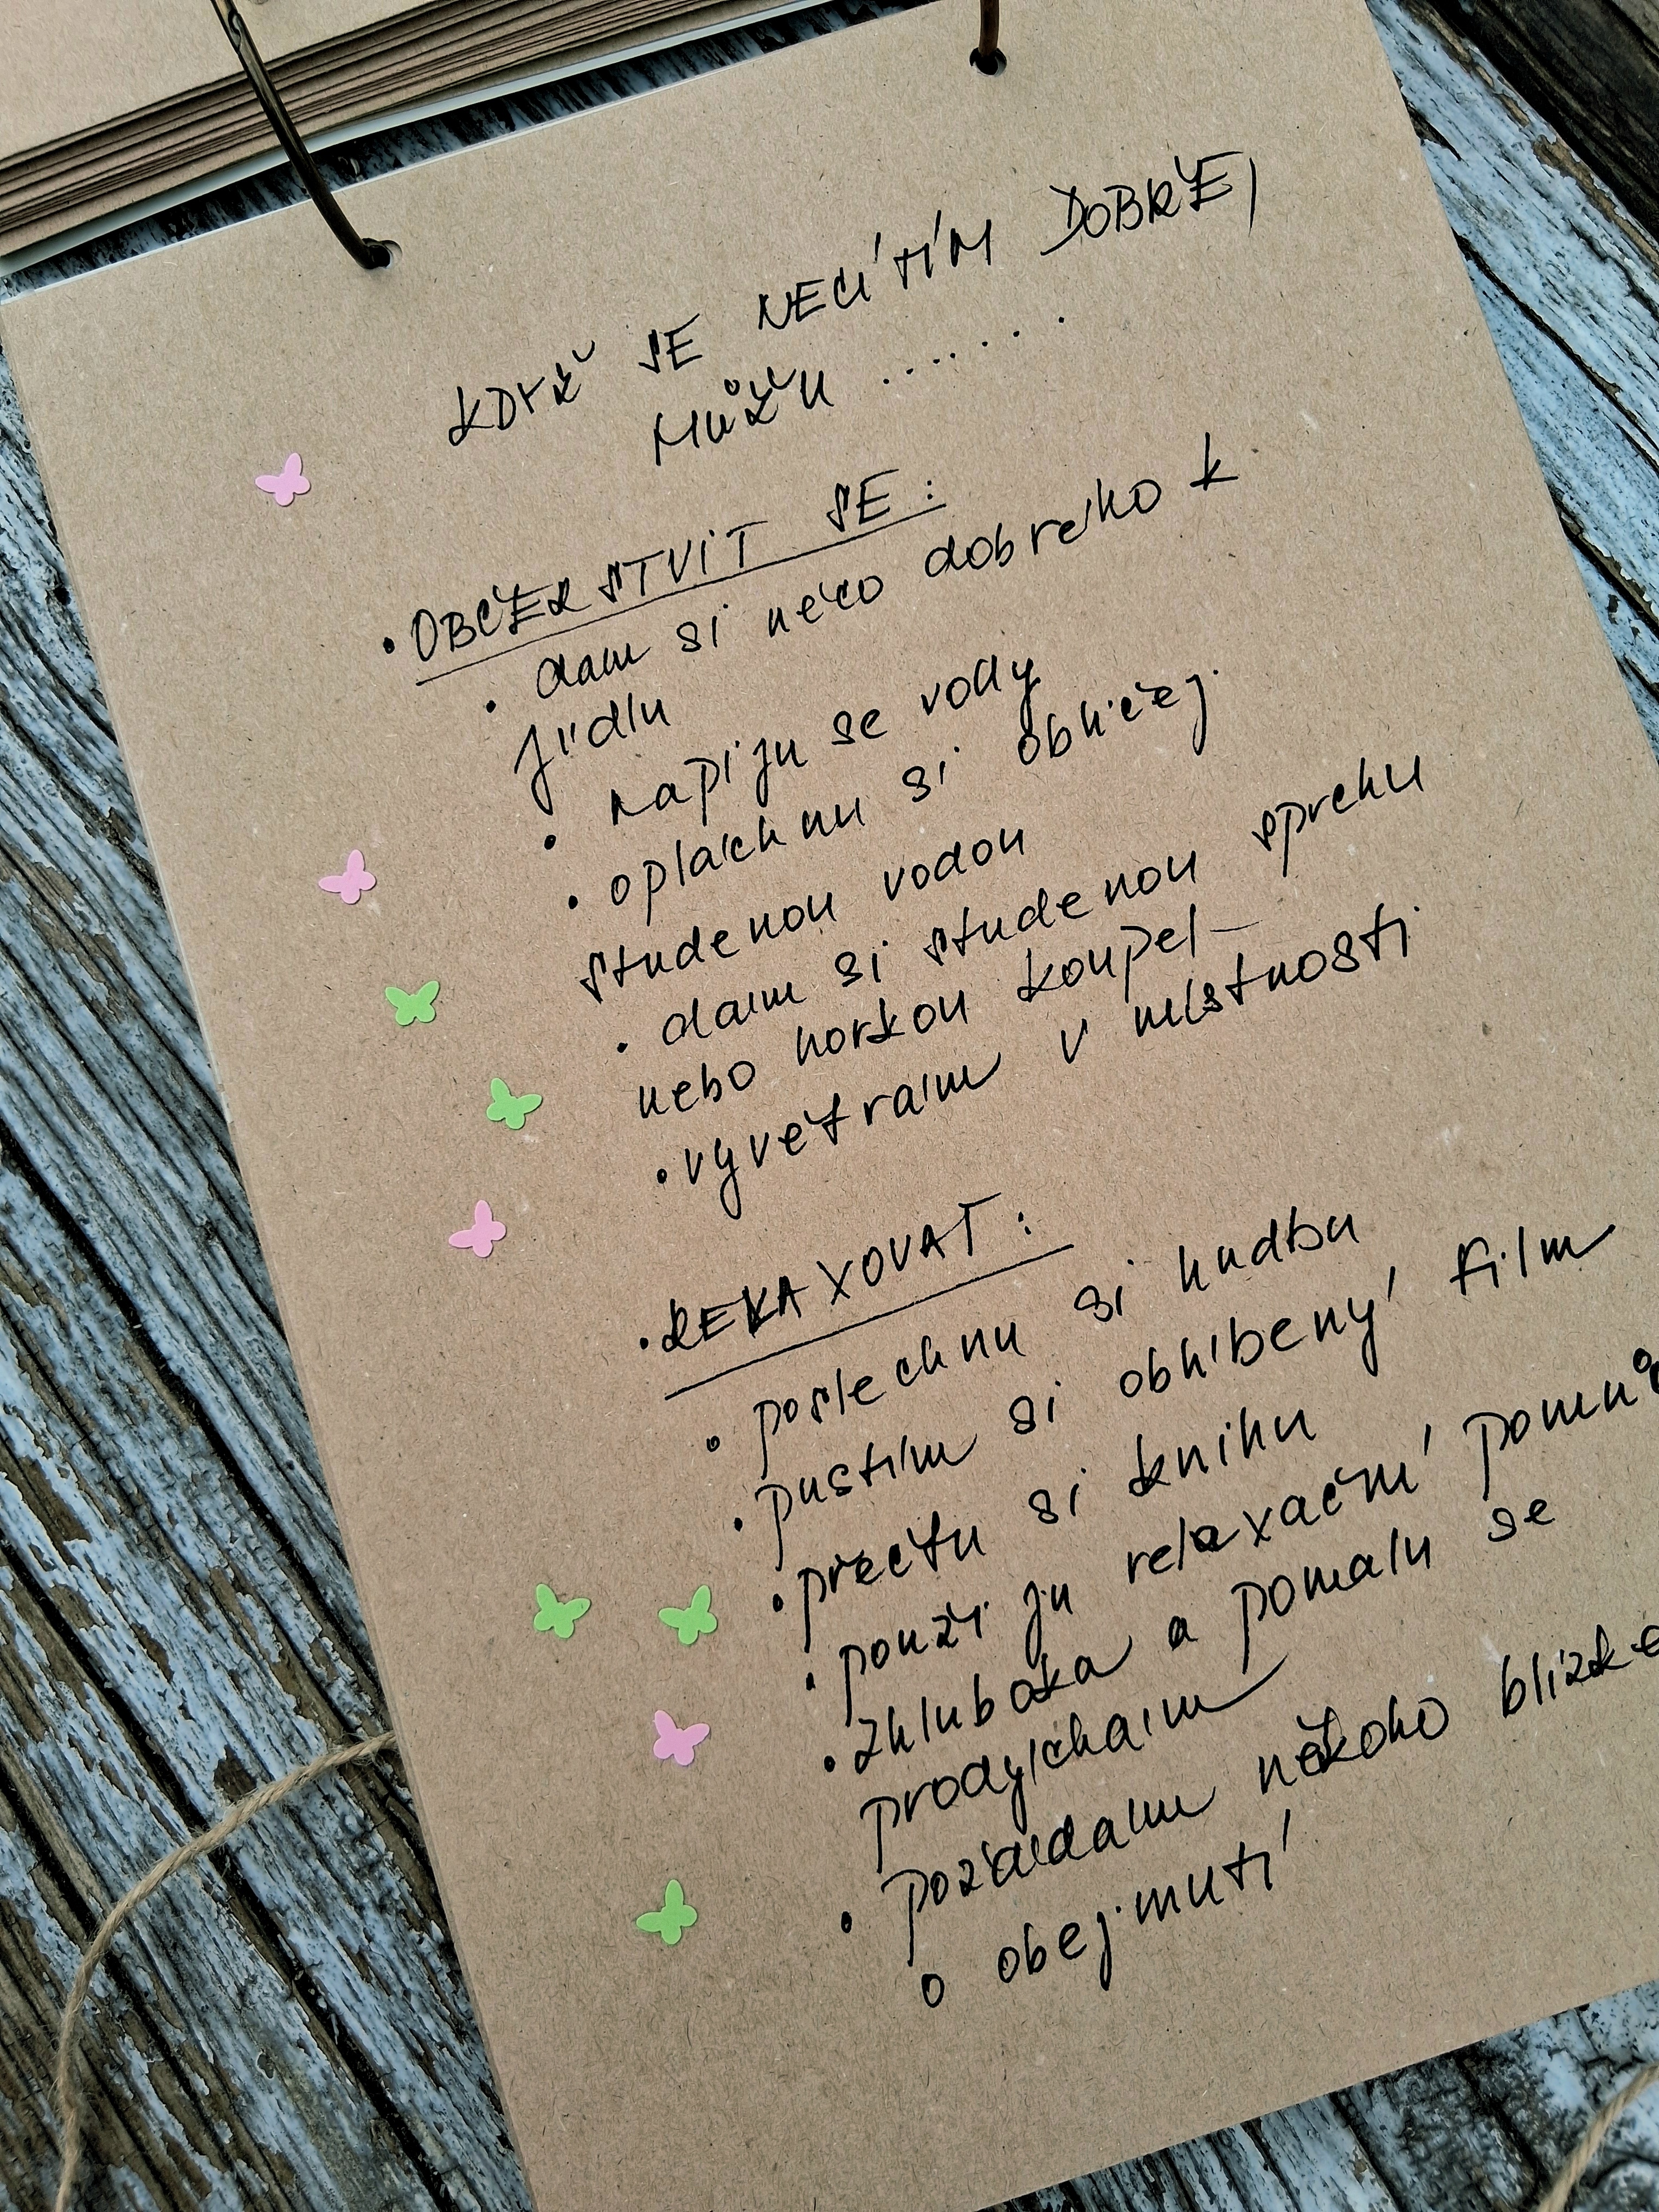 KDYŽ SE NECÍTÍM DOBŘE,
MŮŽU .......
• OBČERSTVIT SE:
• dám si něco dobrého k
jídlu
• napiju se vody
• opláchnu si obličej
studenou vodou
• dám si studenou sprchu
nebo horkou koupel
• vyvětrám v místnosti
• RELAXOVAT:
• poslechnu si hudbu
• pustím si oblíbený film
• přečtu si knihu
• použiju relaxační
• zhluboka a pomalu se
prodýchám
• požádám někoho
o obejmutí